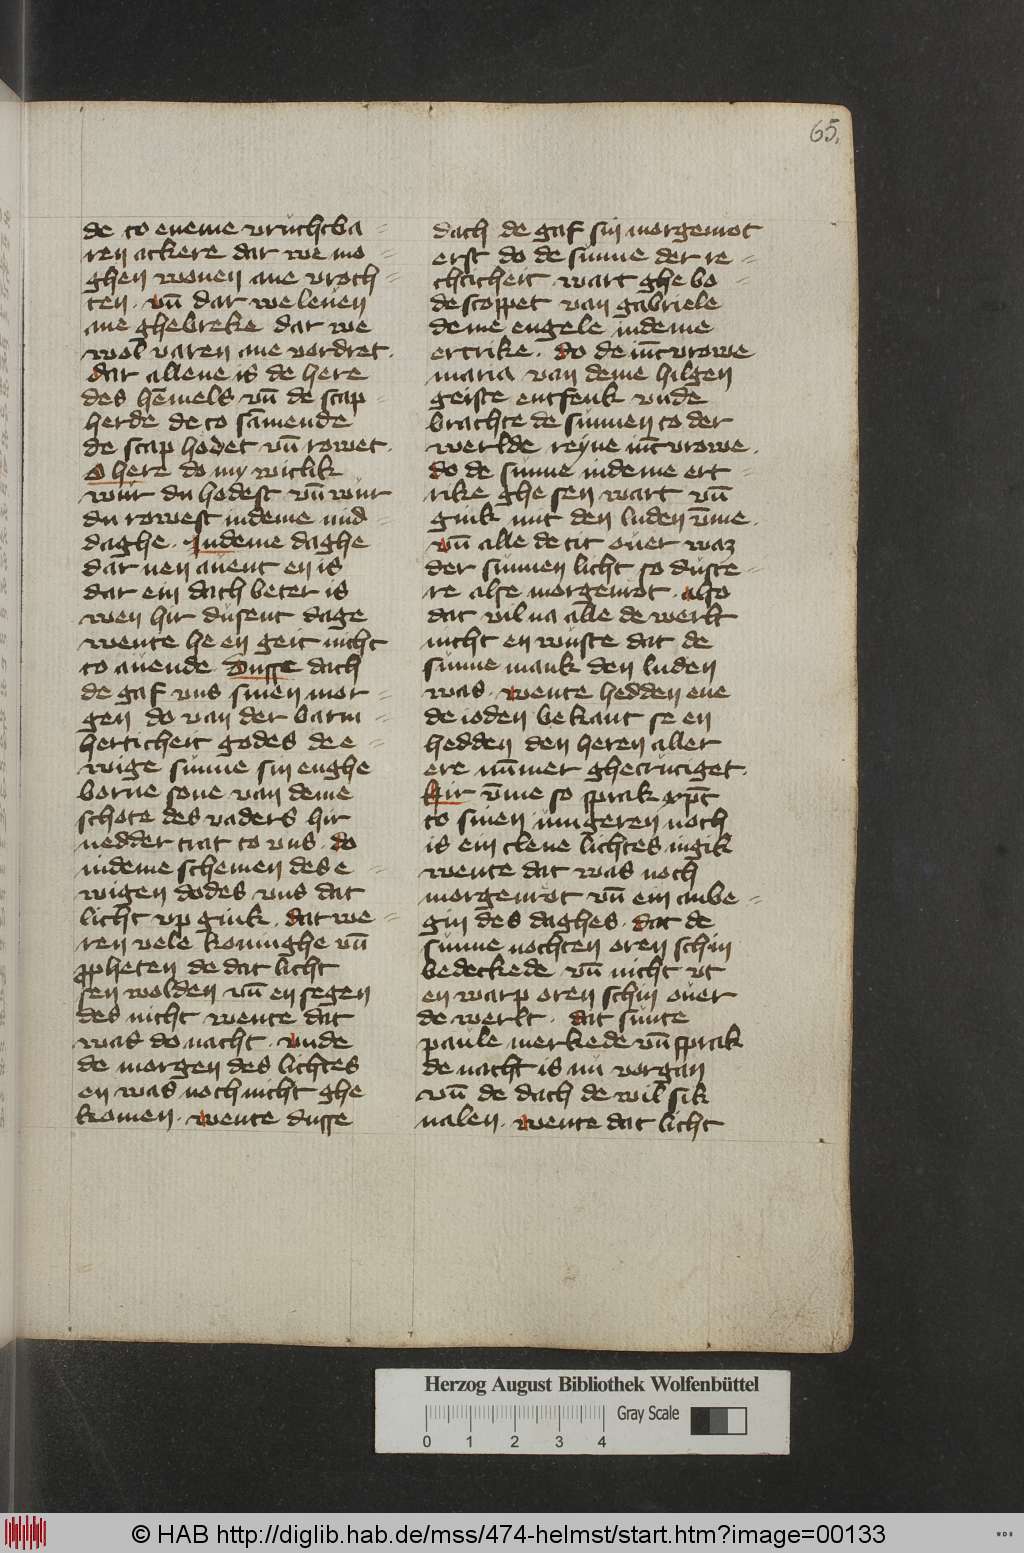 65.
de to eneme vruchtba=
ren ackere dar we mo=
ghen wonen ane vroch=
ten. vn̄ dar we leuen
ane ghebreke dar we
wol varen ane vordret.
dar allene is de here
des hēmels vn̄ de scap=
herde de to sāmende
de scap hodet vn̄ rowet.
O here do my witlik
wur du hodest vn̄ wur
du rowest indeme mid=
daghe. Indeme daghe
dar nen auent en is
dar ein dach beter is
wen hir dusent dage
wente he en geit nicht
to auende Dusse dach
de gaf vns sinen mor=
gen do van der barm=
herticheit godes de e=
wige sunne sin enghe
borne sone van deme
schote des vaders hir
nedder trat to vns. do
indeme schemen des e=
wigen dodes vns dat
licht vp gink. dat we=
ren vele koninghe vn̄
ppheten de dat licht
sen wolden vn̄ en segen
des nicht wente dat
was do nacht. vnde
de morgen des lichtes
en was noch nicht ghe
komen. wente dusse
dach de gaf sin morgenrot
erst do de sunne der re=
chticheit wart ghe bo=
descoppet van gabriele
deme engele indeme
ertrike. do de iūcvrowe
maria van deme hilgen
geiste entfenk vnde
brachte de sunnen to der
werlde reyne iūcvrowe.
do de sunne indeme ert=
rike ghe sen wart vn̄
gink mit den luden v̄me.
vn̄ alle de tit ouer waz
der sunnen licht so duste=
re alse morgenrot. also
dat vil na alle de werlt
nicht en wuste dat de
sunne mank den luden
was. wente hedden ene
de ioden bekant se en
hedden den heren aller
ere nūmer ghecruciget.
Hir v̄me so sprak xp̄c
to sinen iungeren noch
is ein clene lichtes mgik
wente dat was noch
morgenrot vn̄ ein anbe=
gin des daghes. dat de
sunne nochten oren schin
bedeckede vn̄ nicht vt
en warp oren schin ouer
de werlt. dat sunte
paule merkede vn̄ sprak
de nacht is nu vorgan
vn̄ de dach de wil sik
nalen. wente dat licht
Herzog August Bibliothek Wolfenbüttel
Gray Scale
0 1 2 3 4
© HAB http://diglib.hab.de/mss/474-helmst/start.htm?image=00133